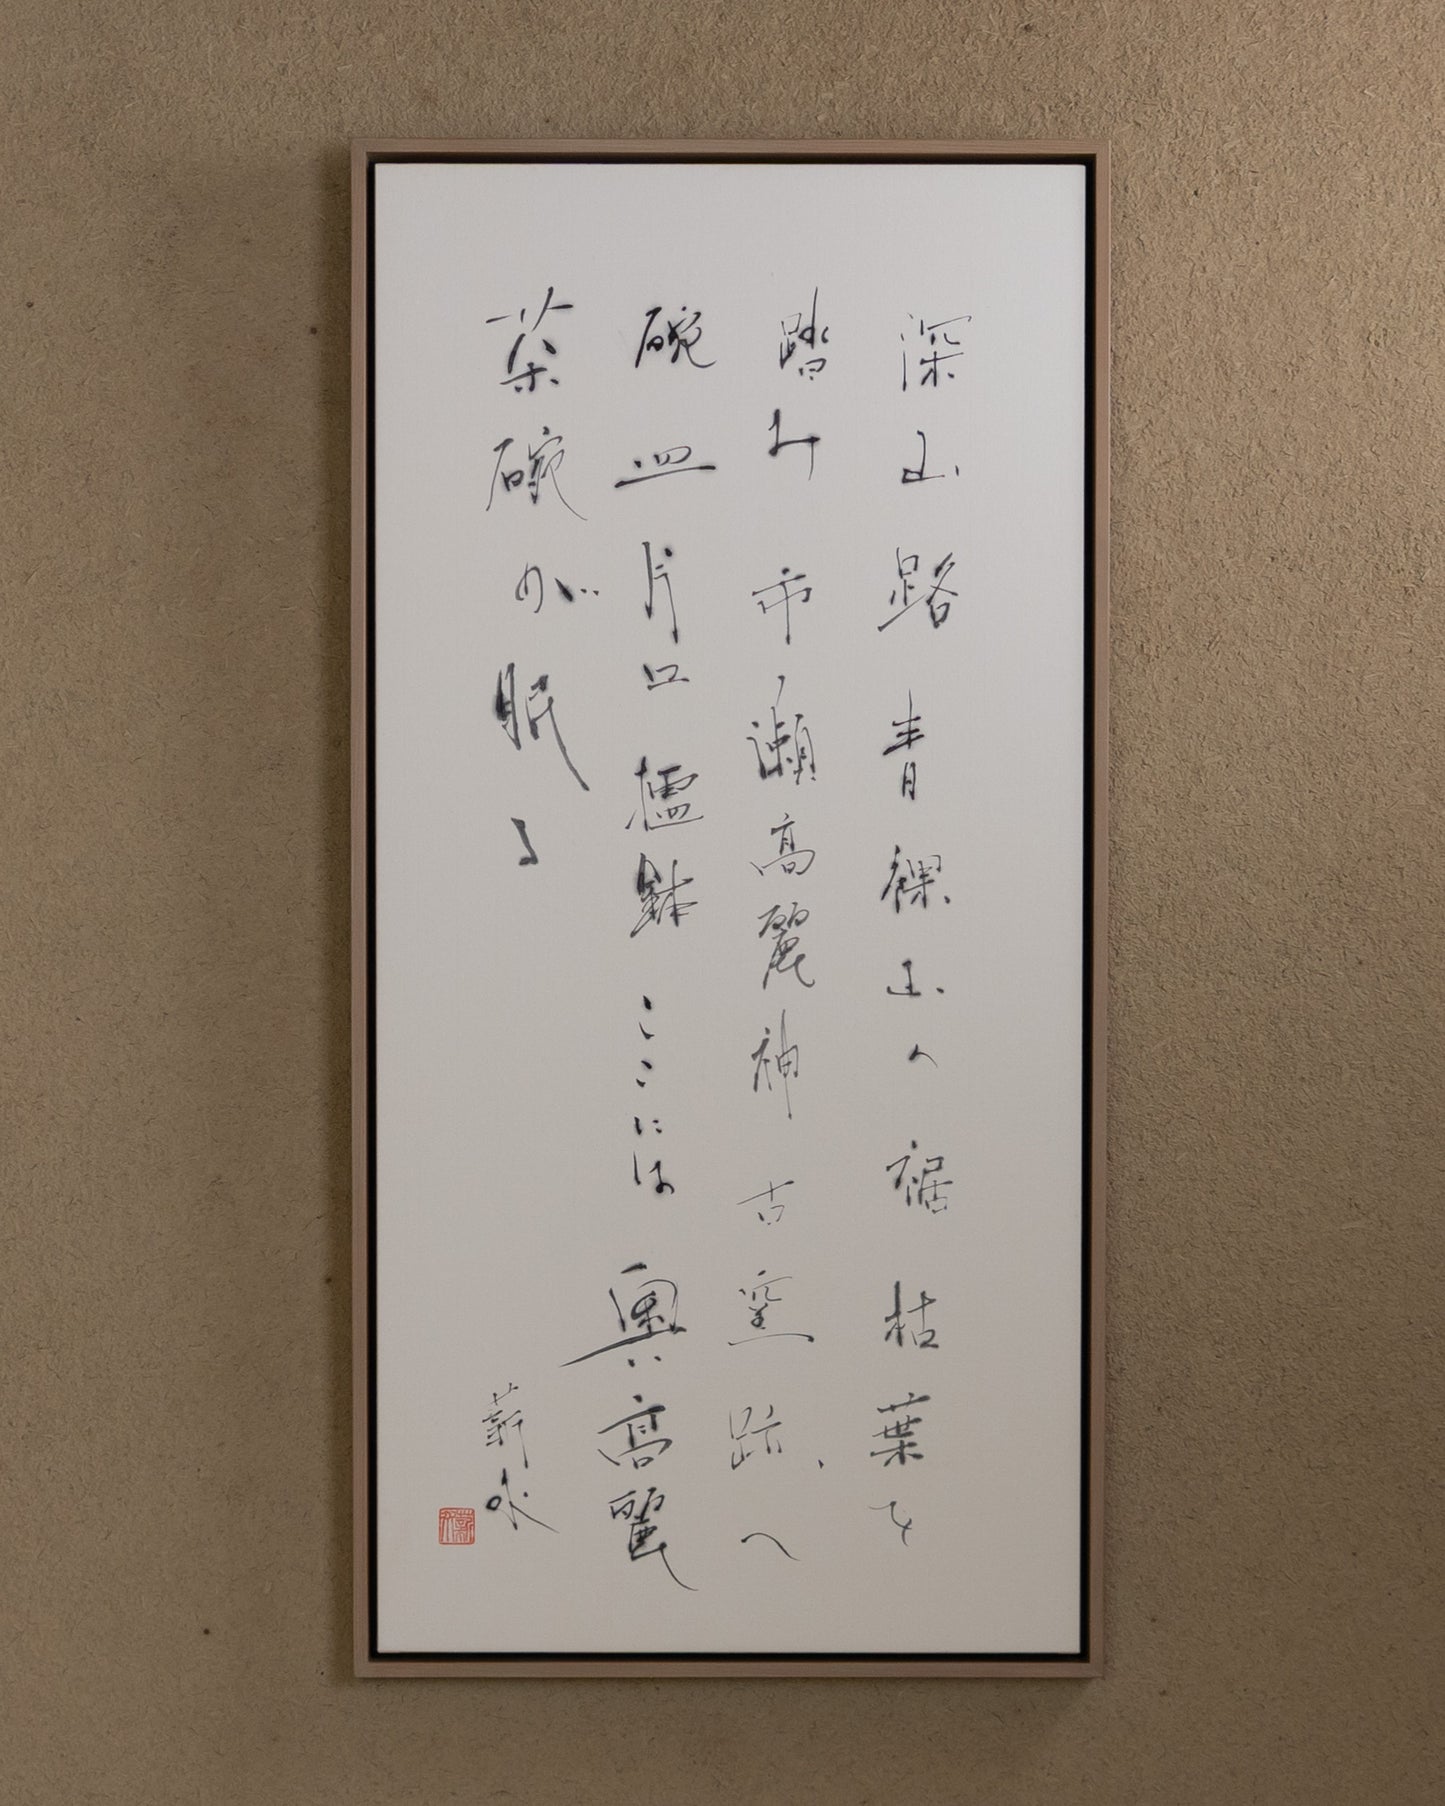 深山路青裸山への裾枯葉を
踏み市ノ瀬高麗神古窯跡へ
碗皿片口擂鉢ここには奥高麗
茶碗が眠る